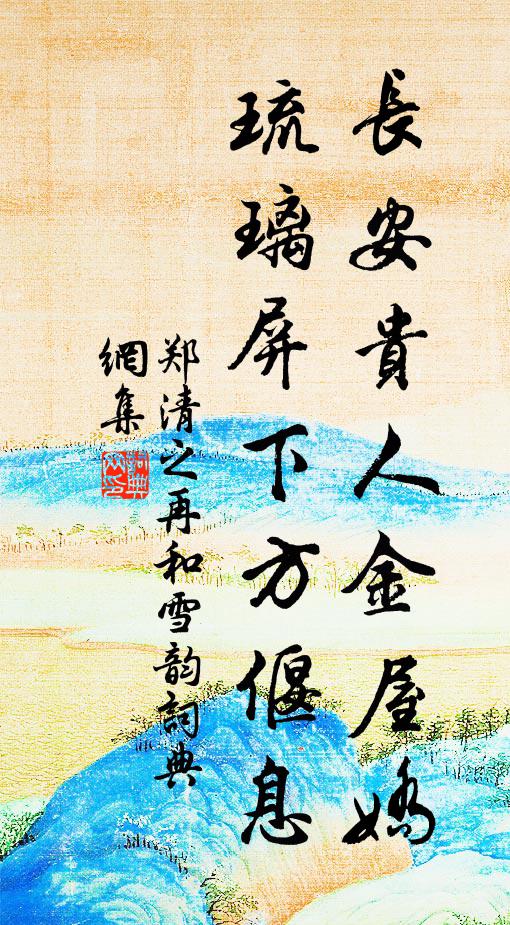 長安貴人金屋嬌
琉璃屏下方偃息
郑清之再和雪韵詞典
網集